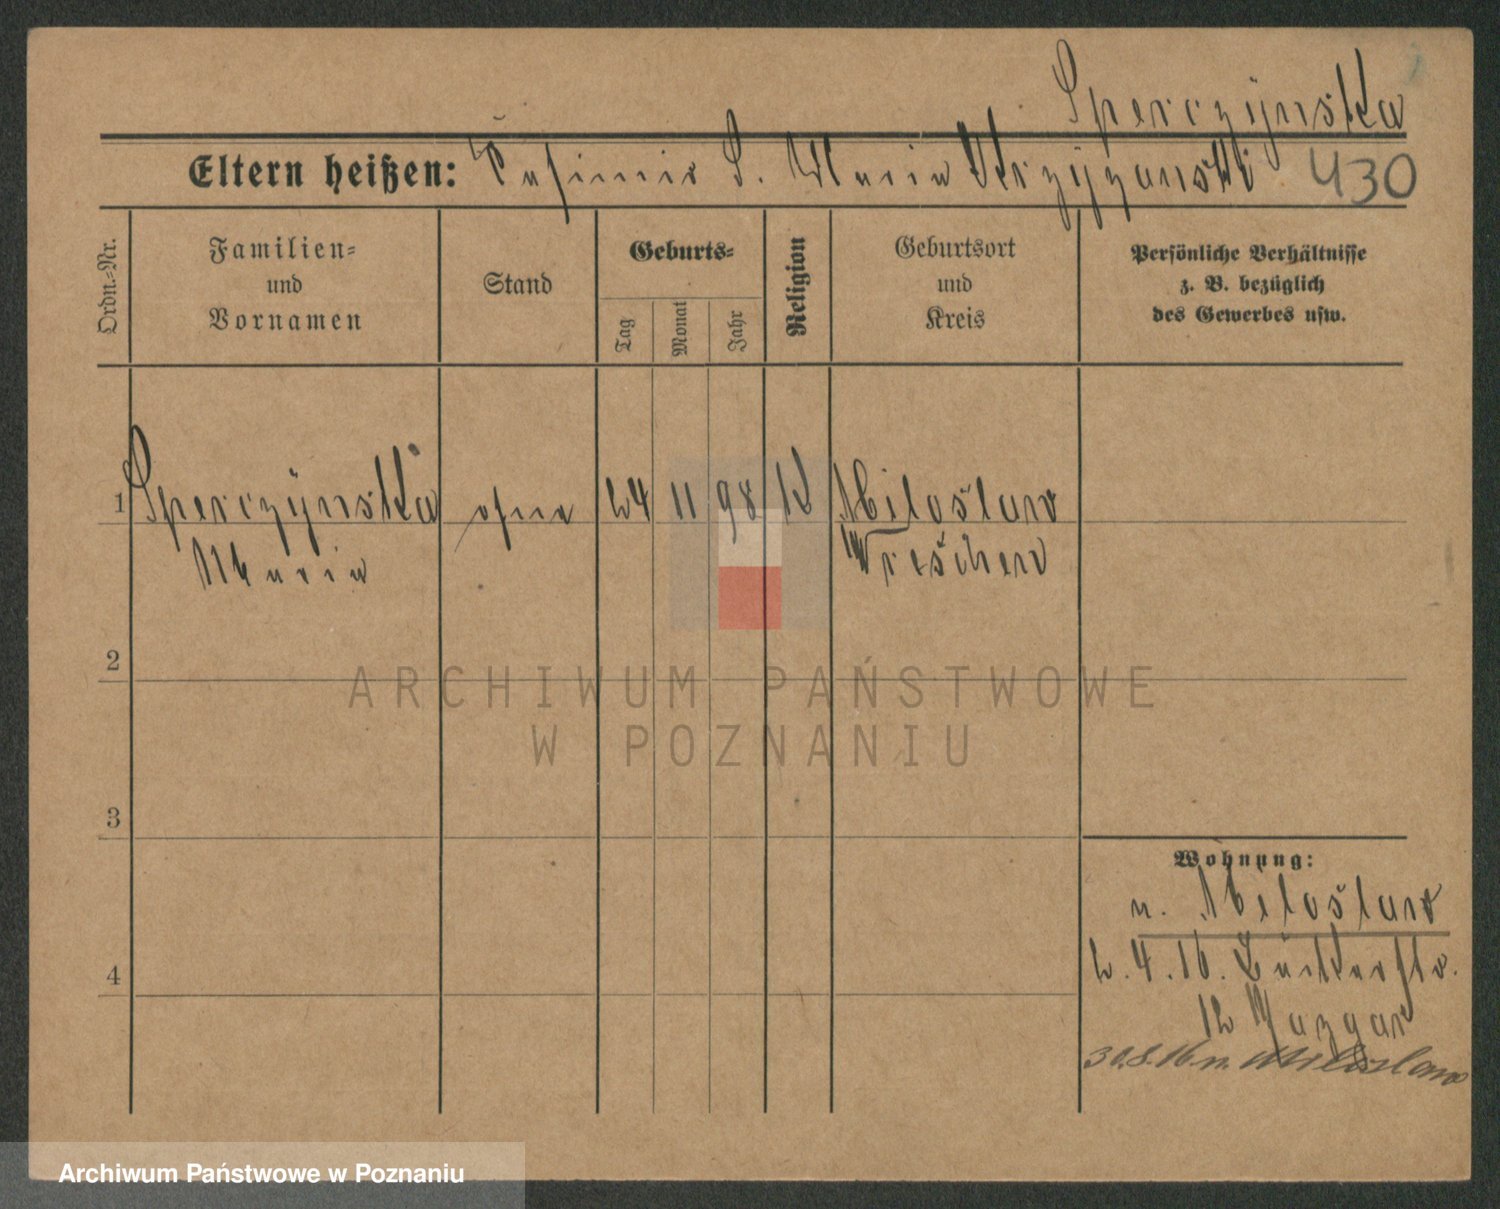 Sperczyńska
Eltern heißen: Casimir S. Maria Krzyżanski 430
Ordn.-Nr.
Familien-
und
Vornamen
Stand
Geburts-
Tag
Monat
Jahr
Religion
Geburtsort
und
Kreis
Persönliche Verhältnisse
z. B. bezüglich
des Gewerbes usw.
1 Sperczyńska ohne 24 11 98 K Miloslaw
Maria Wreschen
2
ARCHIWUM PAŃSTWOWE
W POZNANIU
3
Wohnung:
n. Miloslaw
4
2.4.16.
12
30.8.16 n. Miloslaw
Archiwum Państwowe w Poznaniu